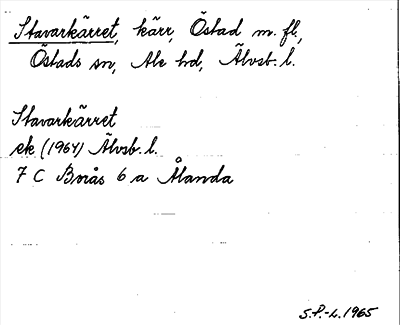 Stavarkärret, kärr, Östad m. fl.,
Östads sn, Ale hd, Älvsb. l.
Stavarkärret
ek (1964) Älvsb. l.
7 C Borås 6 a Ålanda
S.P.-L. 1965